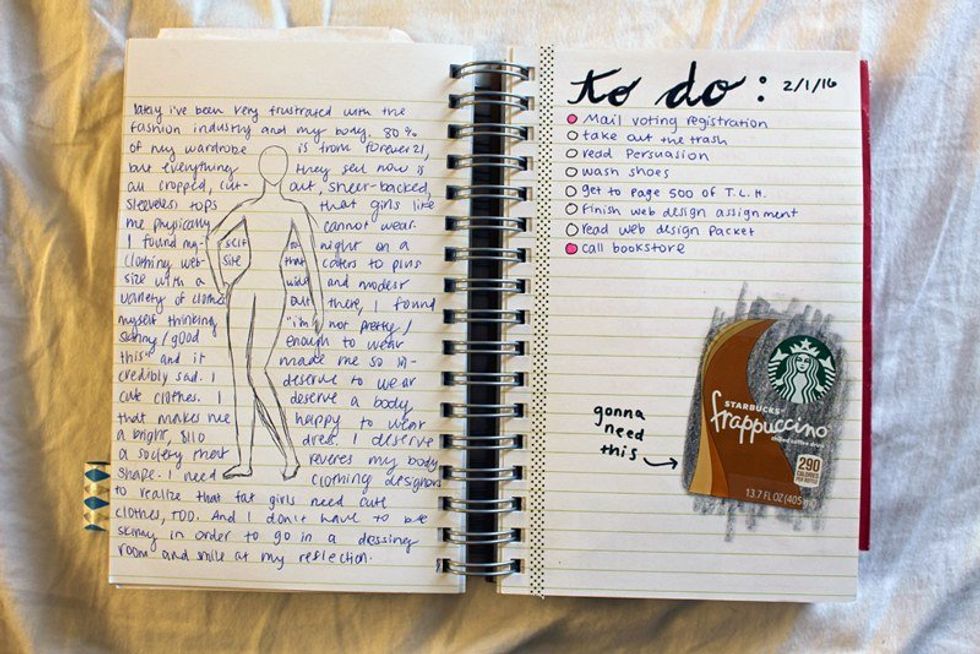 lately i've been very frustrated with the
fashion industry and my body. 80%
of my wardrobe is from forever 21,
but everything they sell now is
all cropped, cut-out, sheer-backed,
sleeveless tops that girls like
me physically cannot wear.
I found my-self so night on a
clothing web-site that caters to plus
size with a wide and modest
variety of clothes out there, I found
myself thinking "i'm not pretty/
skinny/good enough to wear
this" and it made me so in-
credibly sad. I deserve to wear
cute clothes. I deserve a body
that makes me happy to wear
a bright, $110 dress. I deserve
a society that reveres my body
shape. I need clothing designers
to realize that fat girls need cute
clothes, TOO. And I don't have to be
skinny in order to go in a dressing
room and smile at my reflection.
to do: 2/1/16
Mail voting registration
take out the trash
read Persuasion
wash shoes
get to page 500 of T.L.H.
finish web design assignment
read web design packet
call bookstore
gonna
need
this
STARBUCKS
frappuccino
chilled coffee drink
290
CALORIES
PER BOTTLE
13.7 FL OZ (405